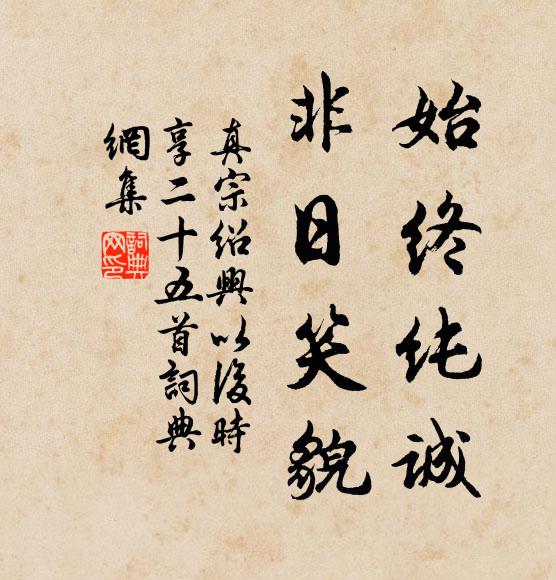 始终纯诚
非日笑貌
真宗绍興以後時
享二十五首詞典
網集
詞典網印